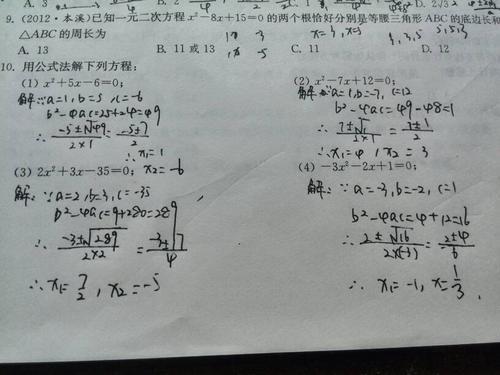 9. (2012·本溪)已知一元二次方程 x²-8x+15=0 的两个根恰好分别是等腰三角形 ABC 的底边长和
△ABC 的周长为
x=3, x=5
3,3,5 5,5,3
A. 13 B. 11 或 13 C. 11 D. 12
10. 用公式法解下列方程:
(1) x²+5x-6=0;
解:∵a=1,b=5,c=-6
b²-4ac=25+24=49
∴ (-5±√49)/(2×1) = (-5±7)/2
∴x₁=1
x₂=-6
(2) x²-7x+12=0;
解:∵a=1,b=-7,c=12
b²-4ac=49-48=1
∴ (7±√1)/(2×1) = (7±1)/2
∴x₁=4,x₂=3
(3) 2x²+3x-35=0;
解:∵a=2,b=3,c=-35
b²-4ac=9+280=289
∴ (-3±√289)/(2×2) = (-3±17)/4
∴x₁=7/2,x₂=-5
(4) -3x²-2x+1=0;
解:∵a=-3,b=-2,c=1
b²-4ac=4+12=16
∴ (2±√16)/(2×(-3)) = (2±4)/-6
∴x₁=-1,x=1/3